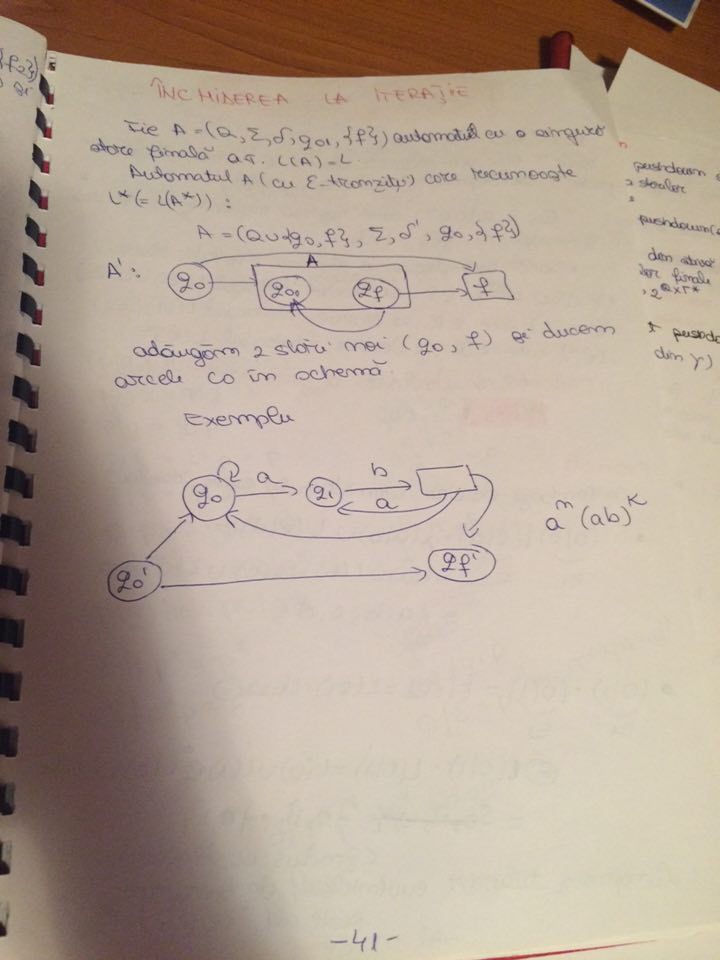 ÎNCHIDEREA LA ITERAȚIE
Fie A = (Q, Σ, δ, q01, {f}) automatul cu o singură
stare finală a.î. L(A) = L.
Automatul A (cu ε-tranziții) care recunoaște
L* (= L(A*)) :
A = (Q ∪ {q0, f}, Σ, δ', q0, {f})
A' :
A
q0
q01
qf
f
adăugăm 2 stări noi (q0, f) și ducem
arcele ca în schemă
Exemplu
q0
a
q1
b
a
a^n (ab)^k
q0'
qf'
-41-
{f2})
pushdown
stărilor
pushdown
din
lor finale
, 2^Q×Γ*
pushdo
din γ)